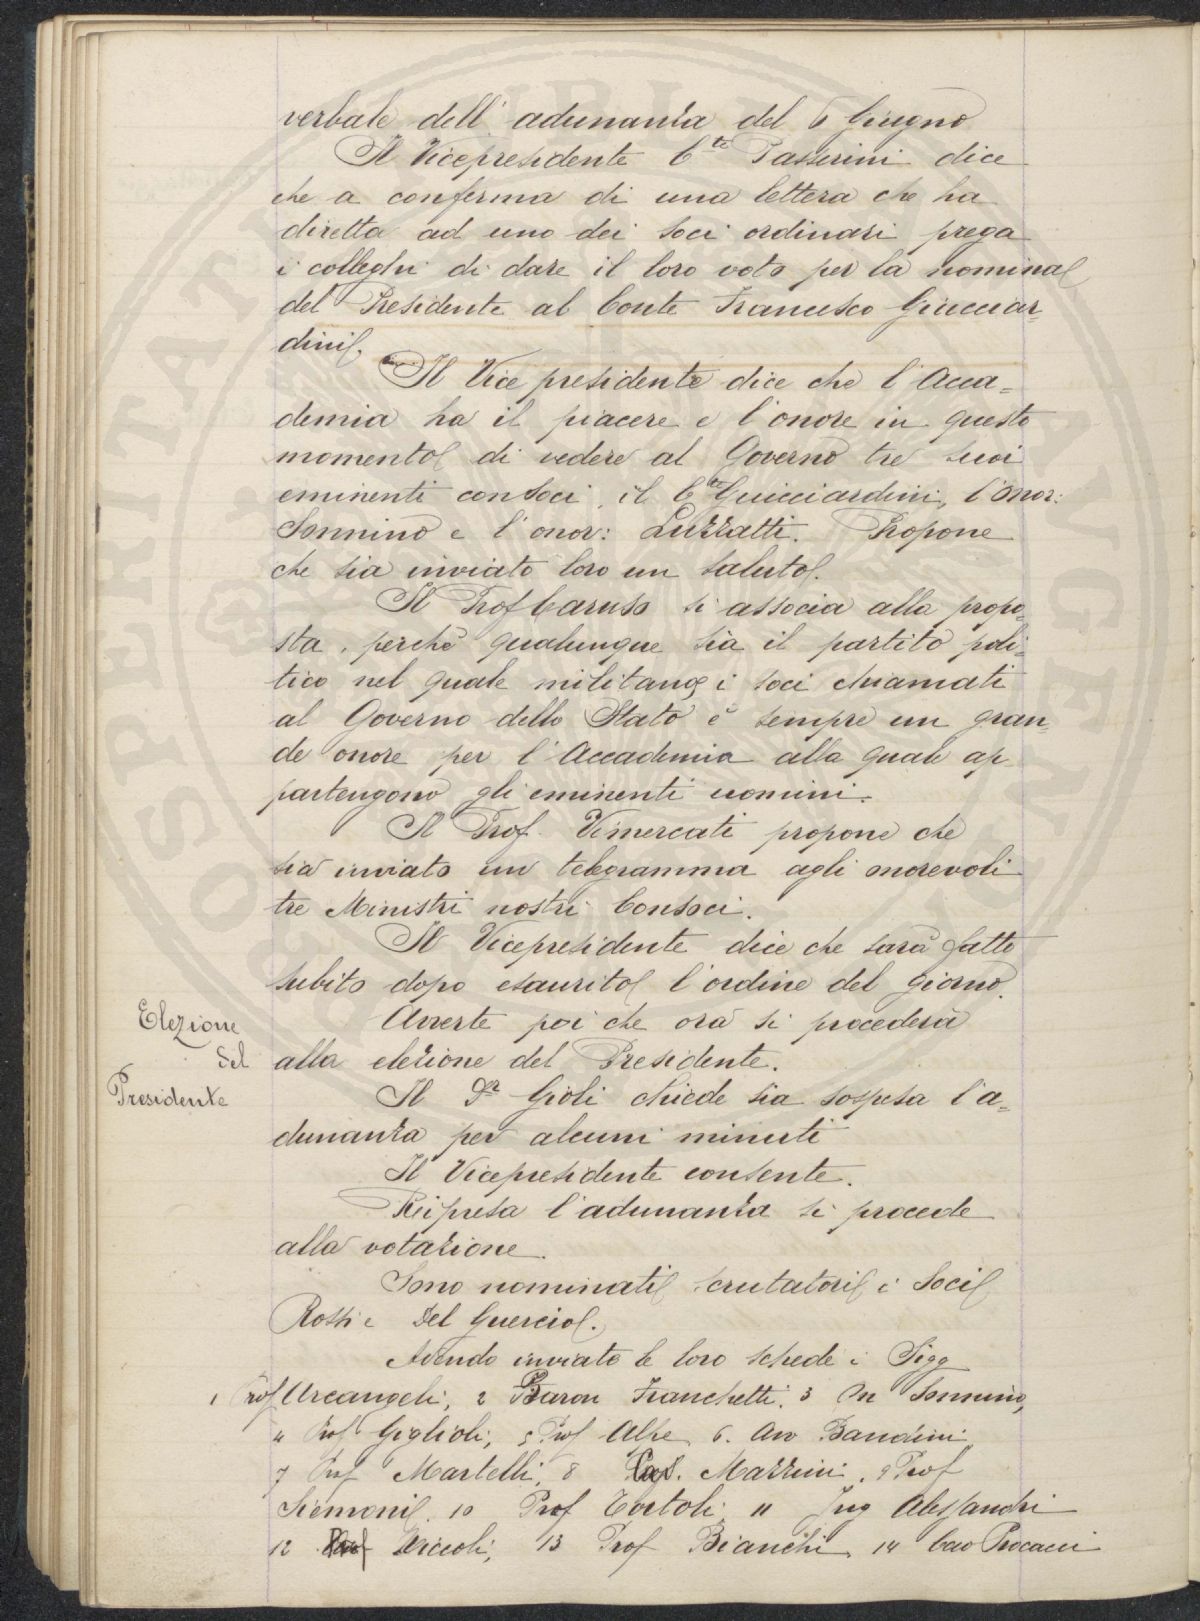 verbale dell'adunanza del 6 Giugno
Il Vicepresidente Cte Passerini dice
che a conferma di una lettera che ha
diretta ad uno dei soci ordinari prega
i colleghi di dare il loro voto per la nomina
del Presidente al Conte Francesco Guicciar-
dini.
Il Vice presidente dice che l'Acca-
demia ha il piacere e l'onore in questo
momento di vedere al Governo tre suoi
eminenti consoci, il Cte Guicciardini, l'onor:
Sonnino e l'onor: Luzzatti. Propone
che sia inviato loro un saluto.
Il Prof Caruso si associa alla propo-
sta, perchè qualunque sia il partito poli-
tico nel quale militano i soci chiamati
al Governo dello Stato è sempre un gran-
de onore per l'Accademia alla quale ap-
partengono gli eminenti uomini.
Il Prof. Vimercati propone che
sia inviato un telegramma agli onorevoli
tre Ministri nostri Consoci.
Il Vicepresidente dice che sarà fatto
subito dopo esaurito l'ordine del giorno.
Elezione
del
Presidente
Avverte poi che ora si procederà
alla elezione del Presidente.
Il Dr Gioli chiede sia sospesa l'a-
dunanza per alcuni minuti
Il Vicepresidente consente.
Ripresa l'adunanza si procede
alla votazione.
Sono nominati scrutatori i Soci
Rossi e Del Guercio.
Avendo inviato le loro schede i Sigg
1 Prof Arcangeli, 2 Baron Franchetti, 3 On Sonnino,
4 Prof Giglioli, 5 Prof Alpe, 6. Avv Bandini
7 Prof Martelli, 8 Mazzini, 9 Prof
Siemoni, 10 Prof Tortoli, 11 Ing Alessandri
12 Niccoli, 13 Prof Bianchi, 14 Cav Procacci
SOSPERITATI PUBLICAE AUGENDAE